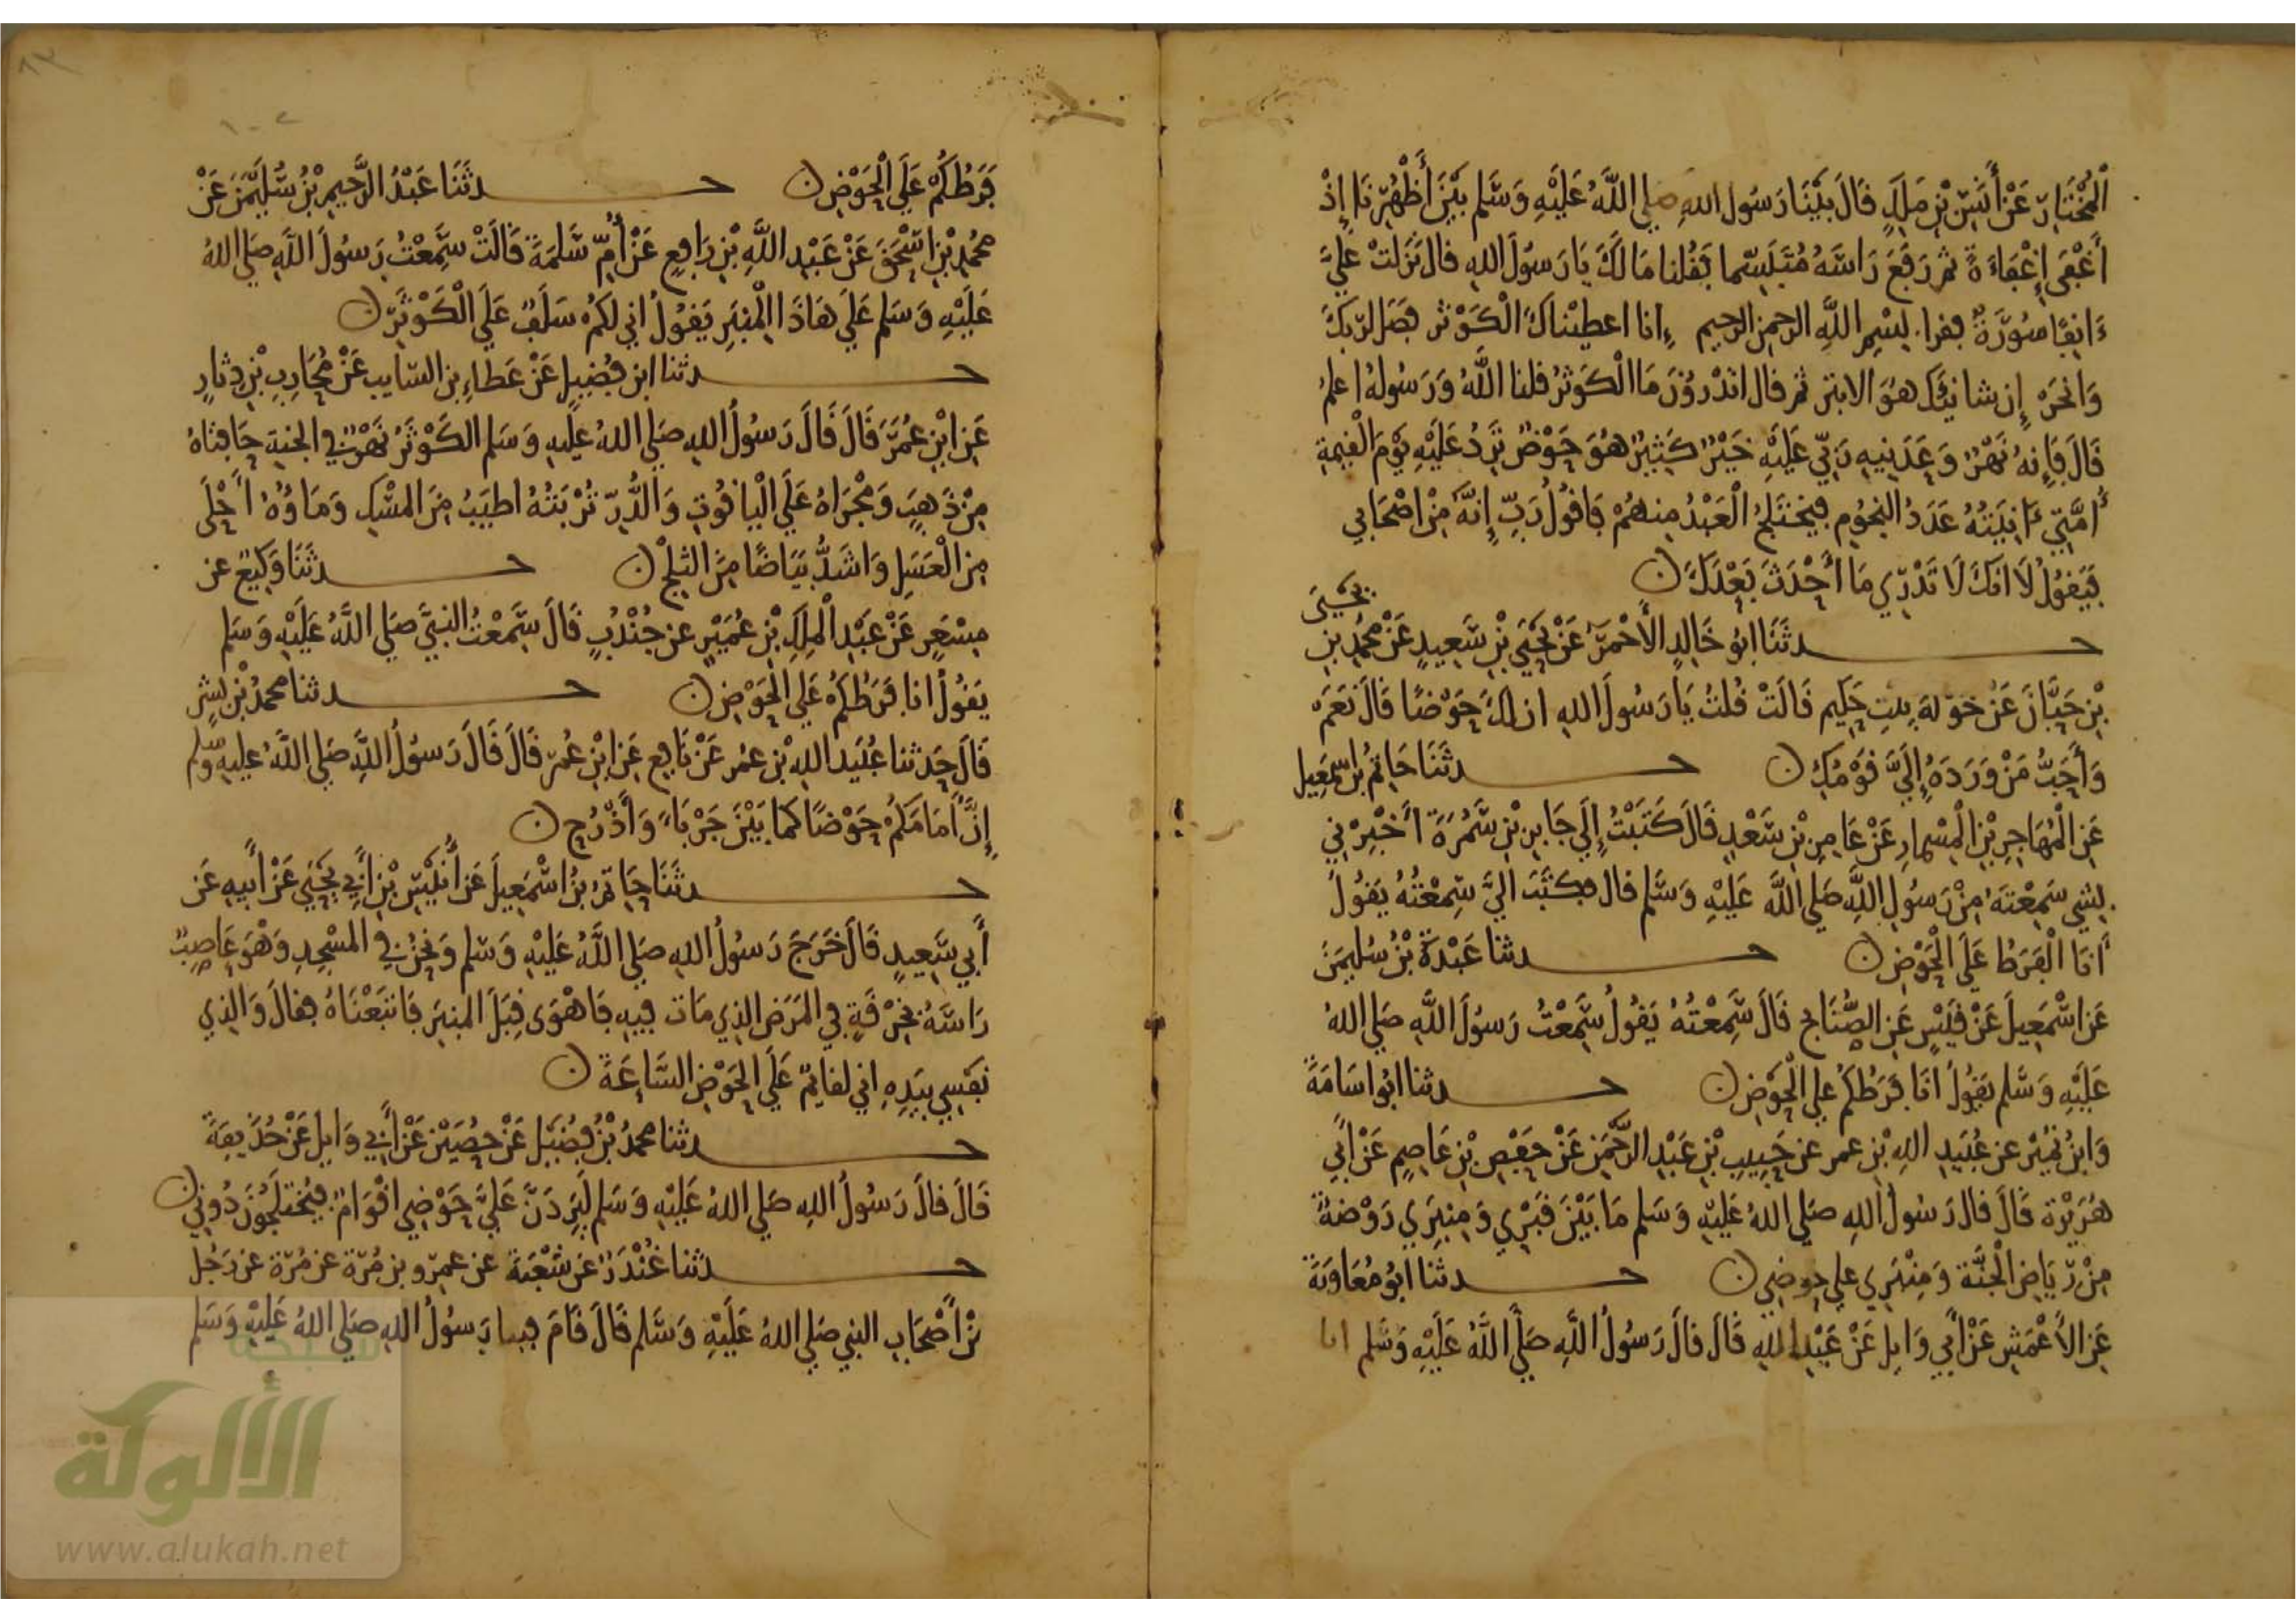 الْمُخْتَارِ عَنْ أَنَسِ بْنِ مَلِكٍ قَالَ بَيْنَا رَسُولُ اللهِ صلى اللَّهُ عَلَيْهِ وَسَلَّم بَيْنَ أَظْهُرِنَا إِذْ
أَغْفَى إِغْفَاءَةً ثم رَفَعَ رَاسَهُ مُتَبَسِّما فَقُلنا مَا لَكَ يَا رَسُولَ اللهِ قال نَزَلَتْ عَلَيَّ
ءَانِفًا سُورَةٌ فقرا بِسْمِ اللَّهِ الرحمن الرحيم إنا اعطيْناكَ الْكَوْثر فصَل لربكَ
وَانحَرْ إِن شانيَك هُوَ الابتر ثم قال اتدْرُونَ مَا الْكَوثرُ قلنا اللَّهُ وَرَسُولُهُ اعلمُ
قَالَ فَإِنهُ نَهْرٌ وَعَدَنِيهِ رَبِّي عَلَيْهِ خَيْرٌ كَثِيرٌ هُوَ حَوْضٌ تَرِدُ عَلَيْهِ يَوْمَ الْقِيمَةِ
أُمَّتِي ءَانِيَتُهُ عَدَدُ النجُومِ فيختَلَجُ الْعَبْدُ مِنهُمْ فَاقُولُ رَبِّ إِنَّهُ مِنْ اصْحَابِي
فَيَقُولُ لَا انكَ لَا تَدْرِي مَا أَحْدَثَ بَعْدَكَ
يحيى
حدثَنَا ابُو خَالِدٍ الأَحْمَرُ عَنْ يَحْيَى بْنِ سَعِيدٍ عَنْ مُحمدِ بنِ
بْنِ حَبَّانَ عَنْ خَوْلةَ بِنتِ حَكِيم قَالَتْ قُلتُ يَا رَسُولَ اللهِ ان لكَ حَوْضًا قَالَ نَعَمْ
وَأَحَبُّ مَنْ وَرَدَهُ إِلَيَّ قَوْمُكِ حدثَنَا حَاتِمُ بنُ اسْمَعِيل
عَنِ الْمُهَاجِرِ بْنِ الْمِسْمارِ عَنْ عَامِرِ بْنِ سَعْدٍ قَالَ كَتَبْتُ إِلَى جَابِرِ بْنِ سَمُرَةَ أَخْبِرْنِي
بِشَي سَمِعْتَهُ مِنْ رَسُولِ اللَّهِ صَلى اللَّهُ عَلَيْهِ وَسَلم قال فكتَبَ اليَّ سَمِعْتُهُ يَقُولُ
أَنَا الْفَرَطُ عَلَى الْحَوْضِ حدثنا عَبْدَةُ بْنُ سُلَيمَنَ
عَنِ اسْمَعِيلَ عَنْ قَيْسٍ عَنِ الصُّنَابح قَالَ سَمِعْتُهُ يَقُولُ سَمِعْتُ رَسُولَ اللَّهِ صَلى اللهُ
عَلَيْهِ وَسَّلم يَقُولُ انَا فَرَطُكُمْ على الْحَوْضِ حدثنا ابُو اسَامَةَ
وَابْنُ نُمَيْر عن عُبَيدِ اللهِ بْنِ عمر عن خُبيبِ بْنِ عَبْدِ الرَّحْمَنِ عَنْ حَفْصِ بْنِ عَاصِمٍ عَنْ أَبِي
هُرَيْرَة قَالَ قالَ رَسُولُ اللهِ صَلى اللهُ عَلَيْهِ وَسَلم مَا بَيْنَ قَبْرِي وَمِنبَرِي رَوْضةٌ
مِنْ رِيَاضِ الْجَنَّة وَمِنْبَرِي على حوضِي حدثنا ابُو مُعَاوِيَةَ
عَنِ الأَعْمَشِ عَنْ أَبِي وَايِلٍ عَنْ عَبْدِ اللهِ قَالَ قالَ رَسُولُ اللَّهِ صَلَّى اللَّهُ عَلَيْهِ وَسَّلم انا
فَرَطُكُمْ عَلَى الْحَوْضِ حدثَنَا عَبْدُ الرَّحِيمِ بْنُ سُلَيْمَنَ عَنْ
مُحمدِ بْنِ اسْحَقَ عَنْ عَبْدِ اللَّهِ بْنِ رَافِعٍ عَنْ أُمِّ سَلَمَةَ قَالَتْ سَمِعْتُ رَسُولَ اللَّهِ صَلى اللهُ
عَلَيْهِ وَسَلم عَلَى هَاذَا الْمِنبَرِ يَقُولُ اني لَكُمْ سَلَفٌ عَلَى الْكَوْثَرِ
حدثنا ابن فُضَيلٍ عَنْ عَطاءِ بن السّايب عَنْ مُحَارِبِ بْنِ دِثارٍ
عَنِ ابْنِ عُمَرَ قَالَ قَالَ رَسُولُ اللهِ صَلى اللهُ عَلَيهِ وَسَلم الكَوْثَرُ نَهْرٌ في الجنةِ حَافتَاهُ
مِنْ ذَهَبٍ وَمَجْرَاهُ عَلَى الْيَاقُوتِ وَالدُّرِّ تُرْبَتُهُ اطيَبُ مِنَ المسْكِ وَمَاؤُهُ أَحْلَى
مِنَ الْعَسَلِ وَاشَدُّ بَيَاضًا مِنَ الثلجِ حدثَنَا وَكِيعٌ عن
مِسْعَرٍ عَنْ عَبْدِ الْمَلِكِ بْنِ عُمَيْرٍ عن جُنْدُبٍ قَالَ سَمِعْتُ النبيَّ صَلى اللَّهُ عَلَيْهِ وَسَلم
يَقُولُ انا فَرَطُكُمْ عَلى الحَوْضِ حدثنا محمدُ بْنُ بِشْرٍ
قَالَ حَدثنا عُبَيد اللهِ بْن عمر عَنْ نَافِعٍ عَنِ ابْنِ عُمَرَ قَالَ قَالَ رَسُولُ اللَّهِ صَلى اللَّهُ عليهِ وسلم
إِنَّ أَمَامَكُمْ حَوْضًا كما بَيْنَ جَرْبَاءَ وَأَذْرُحَ
حدثَنَا حَاتمُ بنُ اسْمَعِيلَ عَن أُنَيْسِ بْنِ أَبِي يَحْيَى عَنْ أَبِيهِ عَن
أَبِي سَعِيدٍ قَالَ خَرَجَ رَسُولُ اللهِ صَلى اللَّهُ عَلَيْهِ وَسَلم وَنحْنُ في المسْجِدِ وَهْوَ عَاصِبٌ
رَاسَهُ بخِرْقَةٍ في المَرَضِ الذي مَات فِيهِ فَاهْوَى قِبَلَ المنبَرِ فَاتبَعْنَاهُ فقالَ وَالذي
نَفسِي بِيَدِهِ اني لقايمٌ عَلَى الحَوْضِ السَّاعَةَ
حدثنا محمدُ بْنُ فُضَيْل عَنْ حُصَيْنٍ عَنْ أَبِي وَايل عَنْ حُذَيفَةَ
قَالَ قالَ رَسُولُ اللهِ صَلى اللهُ عَلَيْهِ وَسَلم لَيَرِدَنَّ عَلَيَّ حَوْضِي اقْوَامٌ فيُختَلَجُونَ دُونِي
حدثنا غُنْدَرٌ عَن شُعْبَةَ عن عَمرو بن مُرّة عَن مُرّة عن رَجُل
مِّنْ أَصْحَابِ النبي صَلى اللهُ عَلَيْهِ وَسَّلم قَالَ قَامَ فينا رَسُولُ اللهِ صَلى اللهُ عَلَيْهِ وَسَلم
شبكة
الألوكة
www.alukah.net